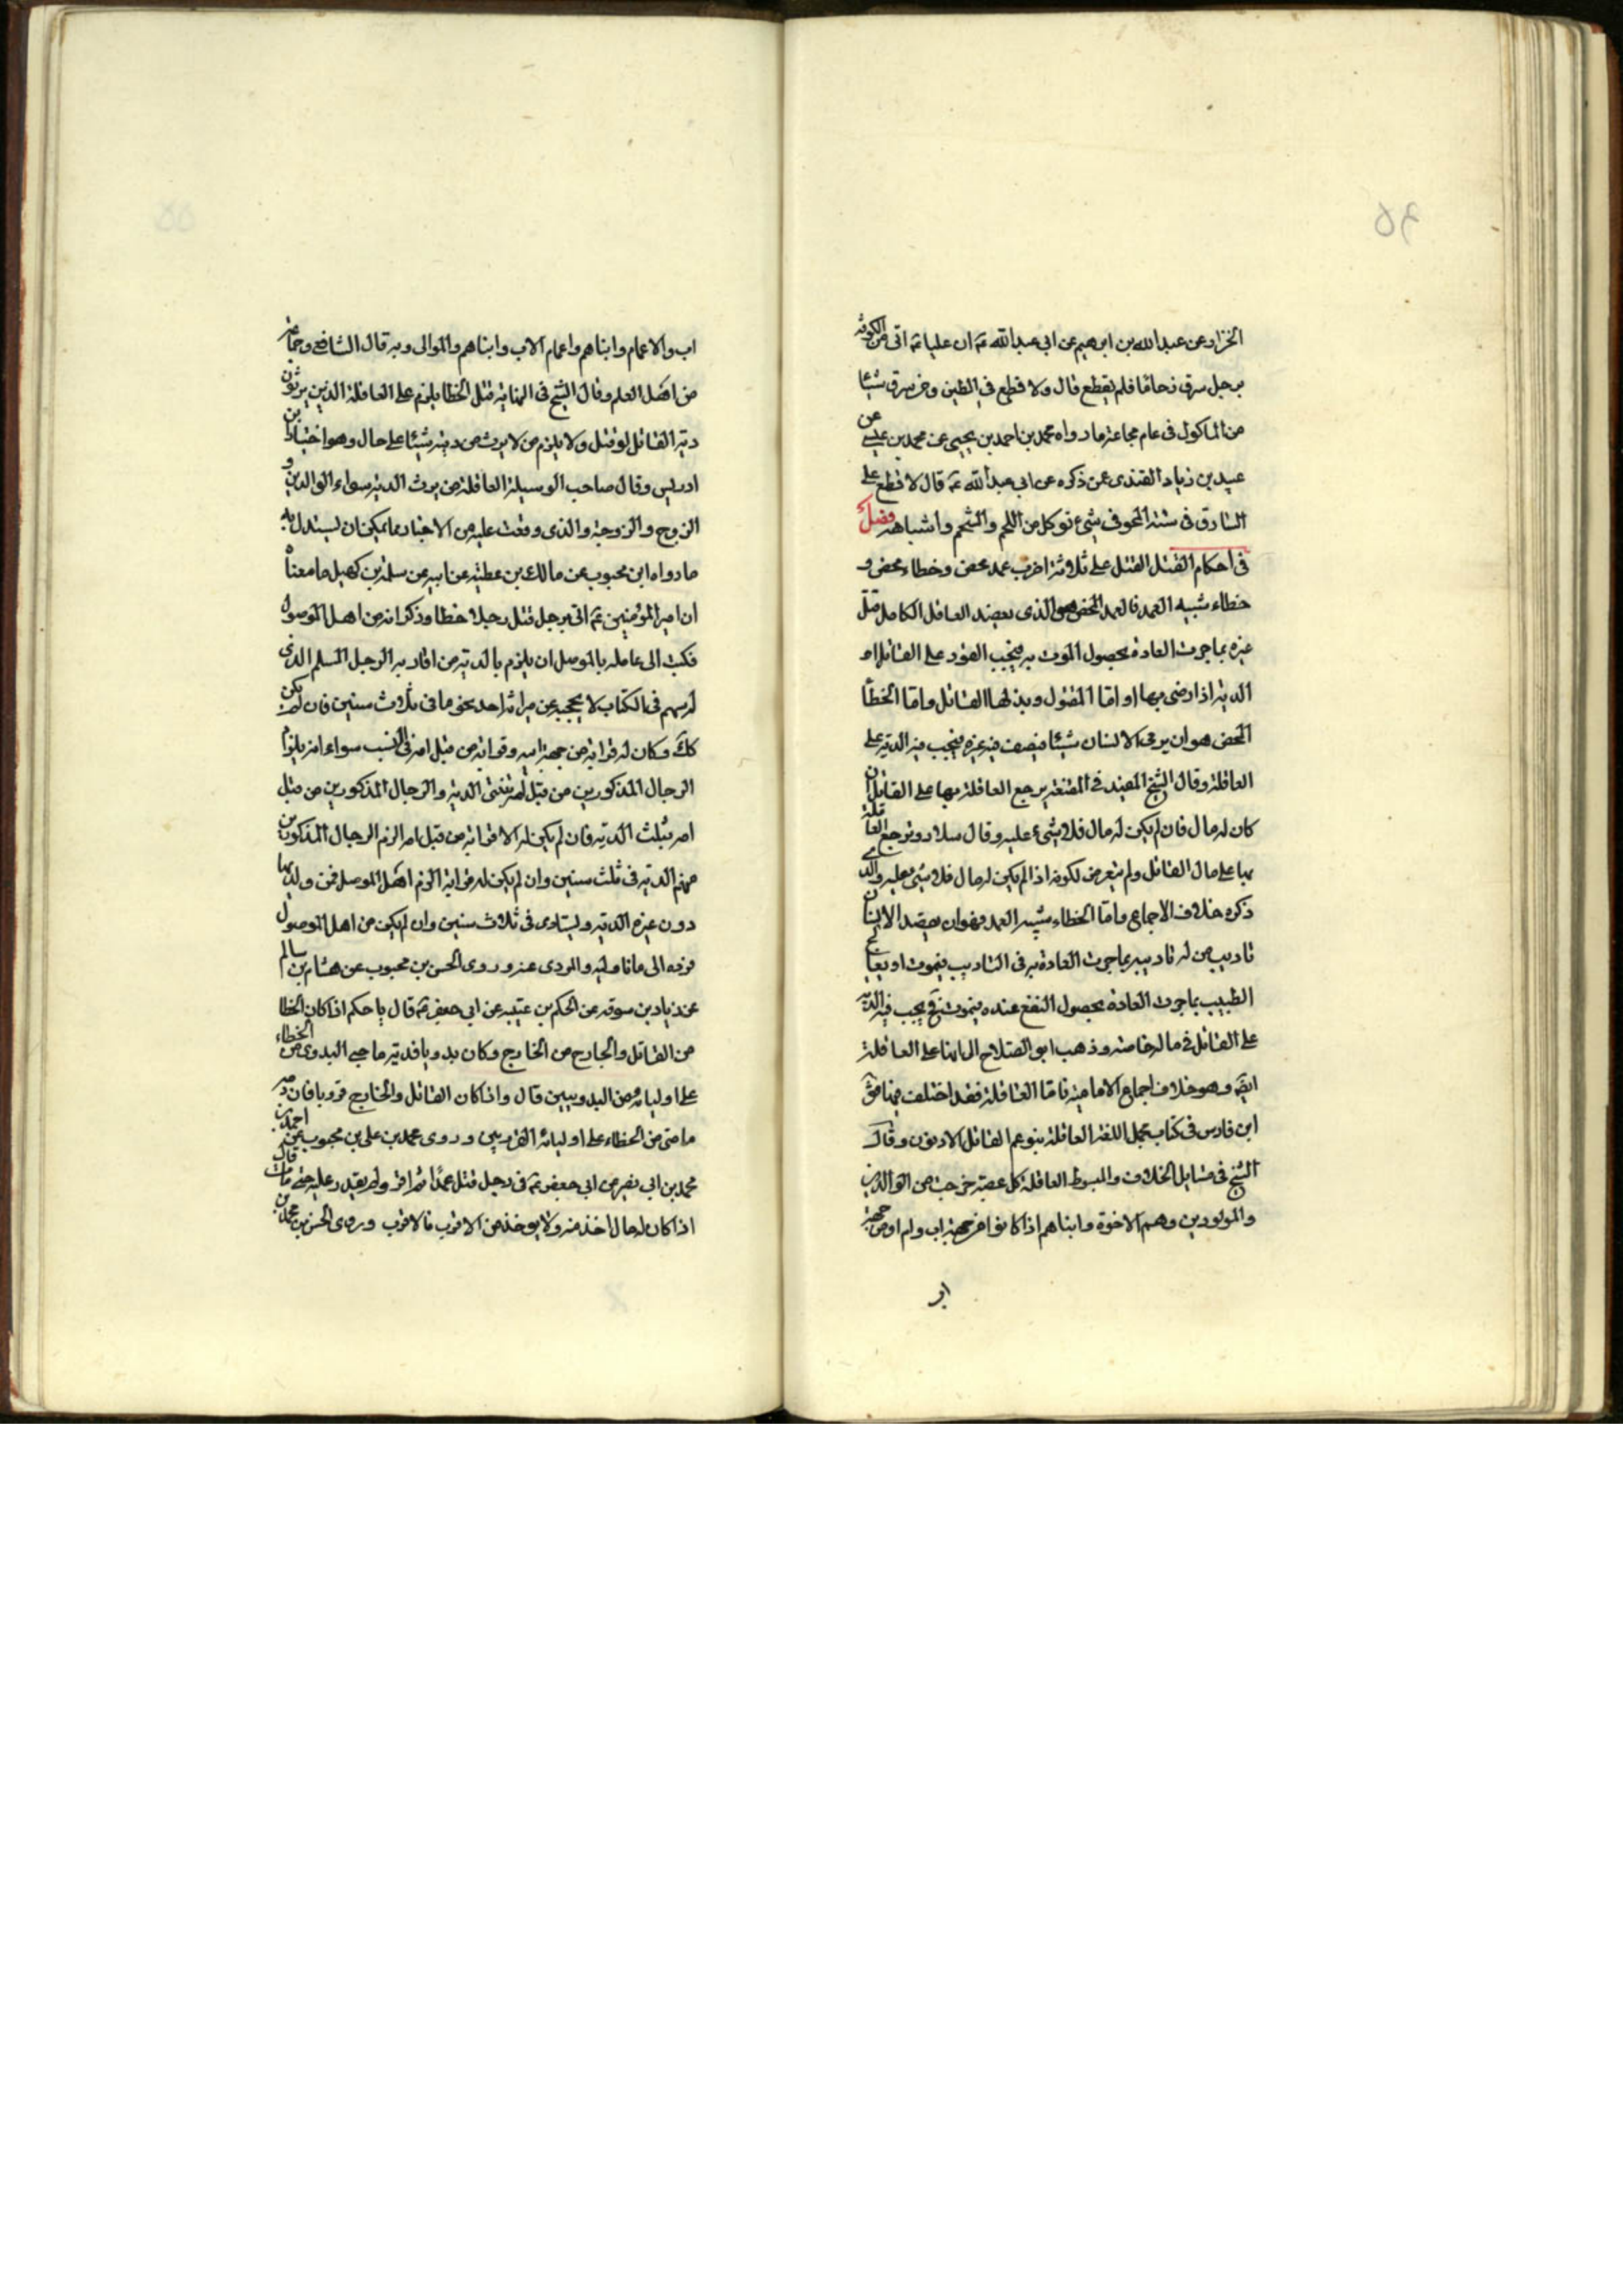 الخزاز عن عبدالله بن ابرهيم عن ابى عبدالله ع ان عليا ع اتى من الكوفة
برجل سرق فلم يقطع قال ولا قطع فى الطين ومن سرق شيئا
من الماكول فى عام مجاعة مارواه محمد بن احمد بن يحيى عن محمد بن عيسى عن
عبيد بن زياد القندى عن ذكره عن ابى عبدالله ع قال لا قطع على
السارق فى سنة المحو فى شىء توكل من اللحم والشحم واشباهه فصل
فى احكام القتل القتل على ثلاثة اضرب عمد محض وخطاء محض و
خطاء شبيه العمد فالعمد المحض هو الذى يقصد العاقل الكامل قتل
غيره بما جرت العادة بحصول الموت به فيجب القود على القاتل او
الدية اذا رضى بها اولياء المقتول وبذلها القاتل واما الخطأ
المحض هو ان يرمى الانسان شيئا فيصيب فيه غيره فيجب فيه الدية على
العاقلة وقال الشيخ المفيد فى المقنعة يرجع العاقلة بها على القاتل ان
كان له مال فان لم يكن له مال فلا شىء عليه وقال سلار وترجع العاقلة
بها على مال القاتل ولم يتعرض لكونه اذا لم يكن له مال فلا شىء عليه والذى
ذكره خلاف الاجماع واما الخطاء شبيه العمد فهو ان يقصد الانسان
تاديب من له تاديبه بما جرت العادة به فى التاديب فيموت او يعالج
الطبيب بما جرت العادة بحصول النفع عنده فيموت فح يجب فيه الدية
على القاتل فى ماله خاصة وذهب ابو الصلاح الى انها على العاقلة
ايضا وهو خلاف اجماع الامامية فاما العاقلة فقد اختلف فيها فق
ابن فارس فى كتاب مجمل اللغة العاقلة بنو عم القاتل الادنون وقال
الشيخ فى مسايل الخلاف والمبسوط العاقلة كل عصبة خرجت من الوالدين
والمولودين وهم الاخوة وابناهم اذا كانوا من جهة اب وام او من جهة
اب
اب والاعمام وابناهم واعمام الاب وابناهم والموالى وبه قال الشافعى وجماعة
من اهل العلم وقال الشيخ فى النهاية قتل الخطا يلزم على العاقلة الذين يرثون
دية القاتل لو قتل ولا يلزم من لا يرث من ديته شيئا على حال وهو اختيار بن
ادريس وقال صاحب الوسيلة العاقلة من يرث الدية سواء الوالدين و
الزوج والزوجة والذى وقعت عليه من الاخبار مما يمكن ان يستدل به
ما رواه ابن محبوب عن مالك بن عطية عن ابيه عن سلمة بن كهيل ما معناه
ان امير المؤمنين ع اتى برجل قتل رجلا خطا وذكر انه من اهل الموصول
فكتب الى عامله بالموصل ان يلزم بالدية من اقاربه الرجل المسلم الذى
له سهم فى الكتاب لا يحجبه عن ميراثه احد نحى ما فى ثلاث سنين فان لم يكن
كك وكان له قرابة من جهة ابيه وقرابة من قبل امه فى النسب سواء امر يلزم
الرجال المذكورين من قبل ثلثى الدية والرجال المذكورين من قبل
امه بثلث الدية فان لم يكن له الا قرابة من قبل امه الزم الرجال المذكورين
منهم الدية فى ثلث سنين وان لم يكن له قرابة الزم اهل الموصل فمن ولد بها
دون غيره الدية ويستادى فى ثلاث سنين وان لم يكن من اهل الموصول
فرده الى فانا وليه والمودى عنه وروى الحسن بن محبوب عن هشام بن سالم
عن زياد بن سوقه عن الحكم بن عتيبه عن ابى جعفر ع قال يا حكم اذا كان الخطا
من القاتل والجارح من الخارج وكان بدويا فدية ما جنى البدوى من الخطاء
على اوليائه من البدويين قال واذا كان القاتل والخارج قرويا فان دية
ما جنى من الخطاء على اوليائه القرويين وروى محمد بن على بن محبوب عن احمد بن
محمد بن ابى نصر عن ابى جعفر ع فى رجل قتل عمدا ثم فر ولم يقدر عليه حتى مات قال
اذا كان له مال اخذ منه ولا يوخذ من الاقرب فالاقرب وروى الحسن بن محمد بن